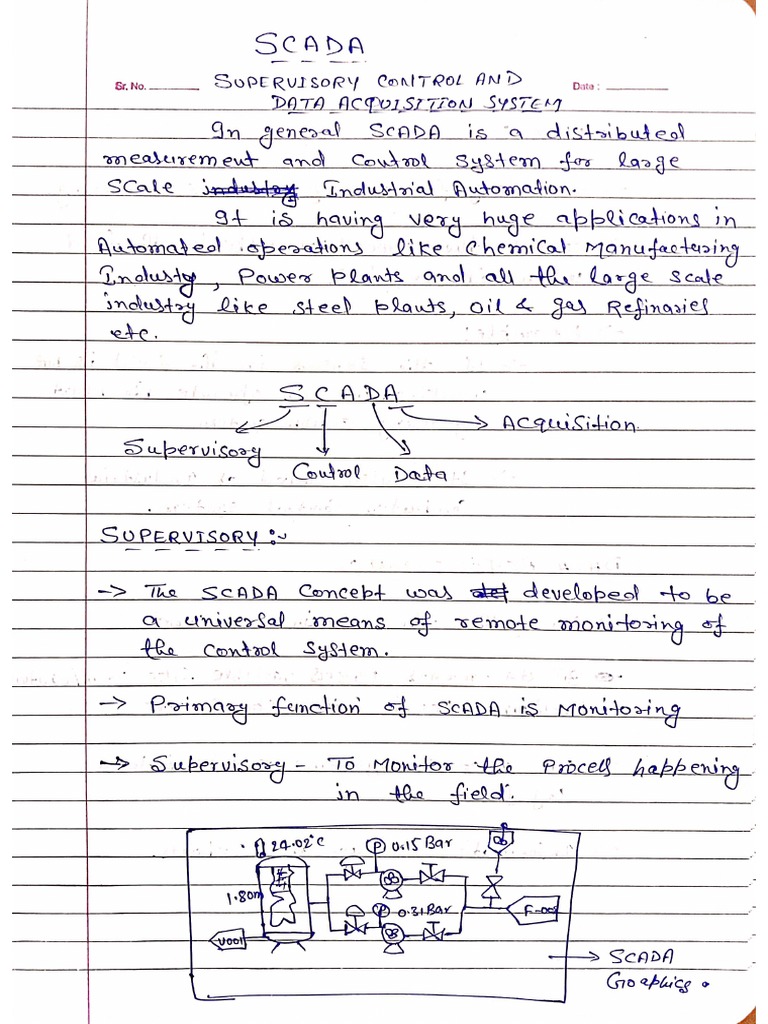 SCADA
Sr. No. Date :
SUPERVISORY CONTROL AND
DATA ACQUISITION SYSTEM
In general SCADA is a distributed
measurement and control system for large
scale industry Industrial Automation.
It is having very huge applications in
Automated operations like Chemical Manufacturing
Industry, Power plants and all the large scale
industry like steel plants, oil & gas Refinaries
etc.
SCADA
Acquisition
Supervisory
Control Data
SUPERVISORY :-
-> The SCADA Concept was developed to be
a universal means of remote monitoring of
the control system.
-> Primary function of SCADA is Monitoring
-> Supervisory - To Monitor the Process happening
in the field.
24.02°C P 0.15 Bar
1.80m
P 0.31 Bar F-001
V001
-> SCADA
Graphics.